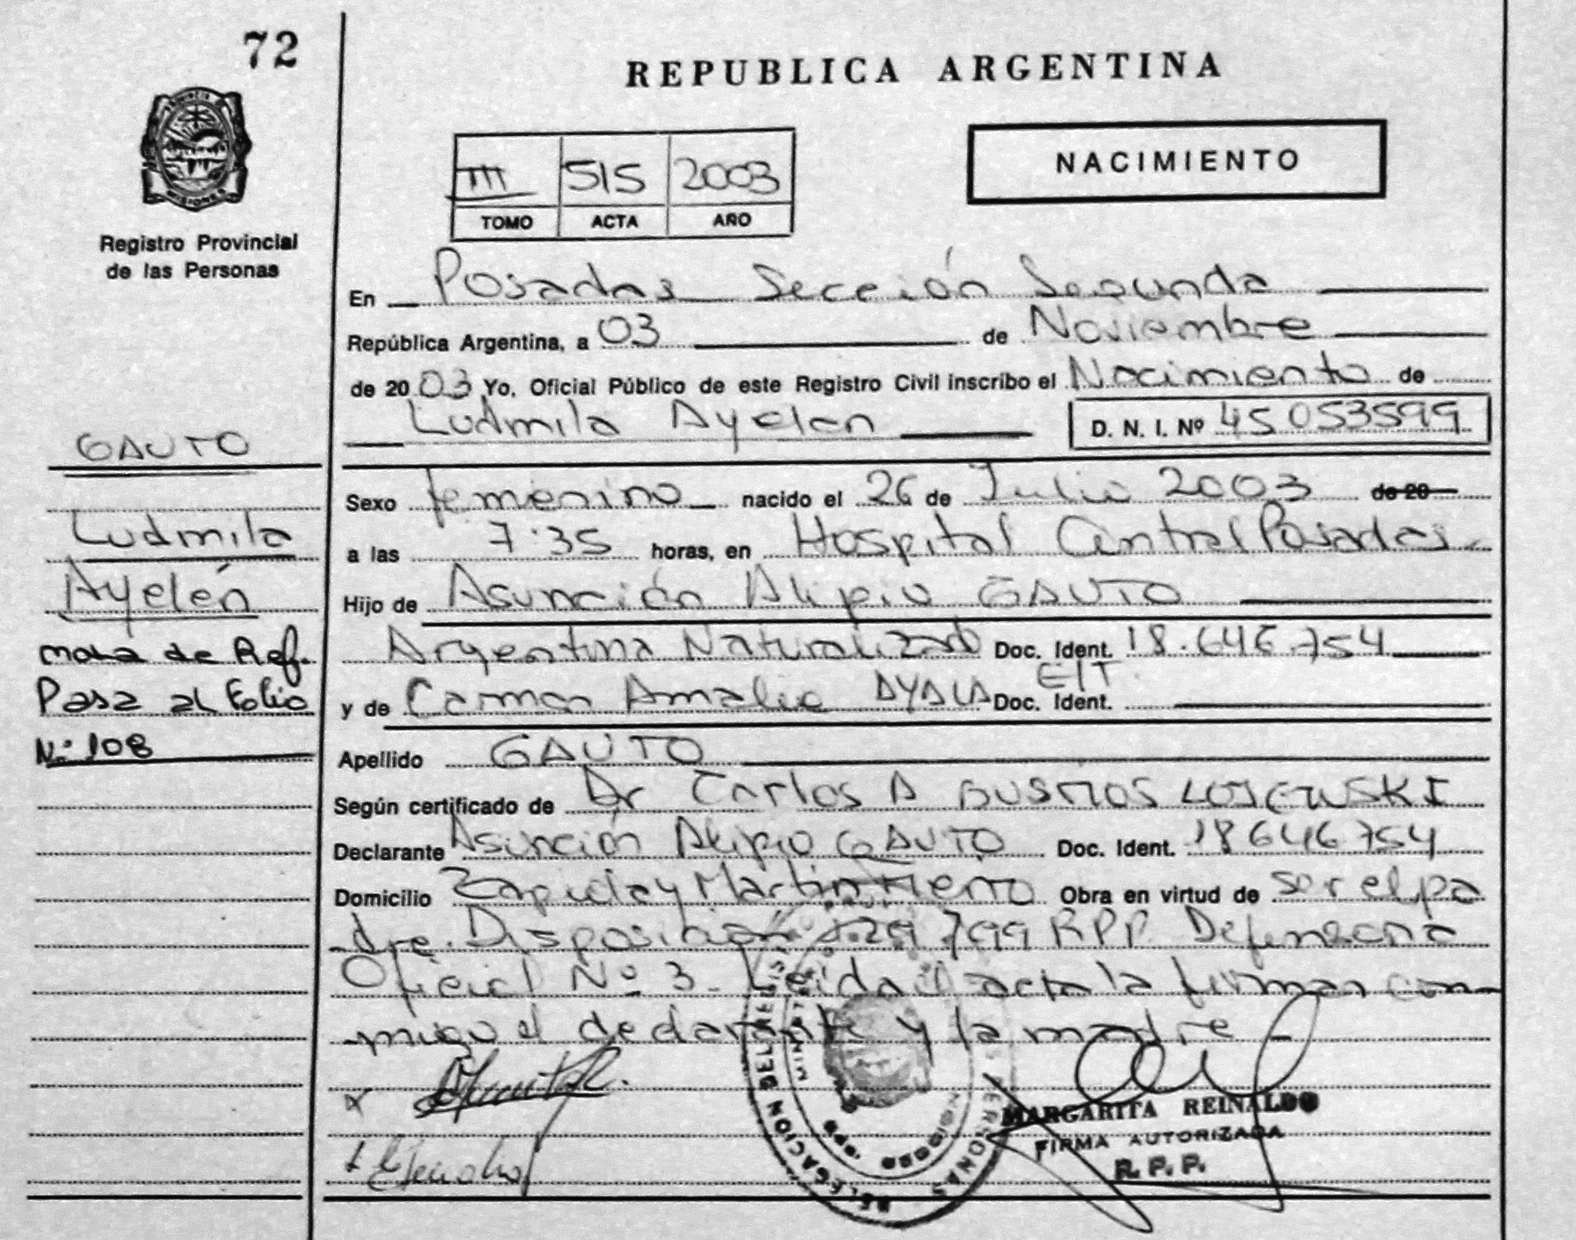 72
REPUBLICA ARGENTINA
NACIMIENTO
III 515 2003
TOMO ACTA AÑO
Registro Provincial
de las Personas
En Posadas Sección Segunda
República Argentina, a 03 de Noviembre
de 2003 Yo. Oficial Público de este Registro Civil inscribo el Nacimiento de
Ludmila Ayelen D. N. I. Nº 45 053599
GAUTO
Ludmila
Ayelén
Nota de Ref.
Pasa al Folio
Nº 108
Sexo femenino nacido el 26 de Julio 2003 de 20
a las 7:35 horas, en Hospital Central Posadas
Hijo de Asunción Alipio GAUTO
Argentina Naturalizado Doc. Ident. 18.646.754
y de Carmen Amalia AYALA Doc. Ident. E/T.
Apellido GAUTO
Según certificado de Dr Carlos A BUSMOS
Declarante Asunción Alipio GAUTO Doc. Ident. 18646754
Domicilio Zapiola y Martin Fierro Obra en virtud de ser el pa
dre. Disposición 1.29 799 RPP Defensoria
Oficial Nº 3. Leida el acta la firman con
migo el declarante y la madre
DELEGACION DEL REGIS PERSONAS
MINISTE
MARGARITA REINALDO
FIRMA AUTORIZADA
R. P. P.